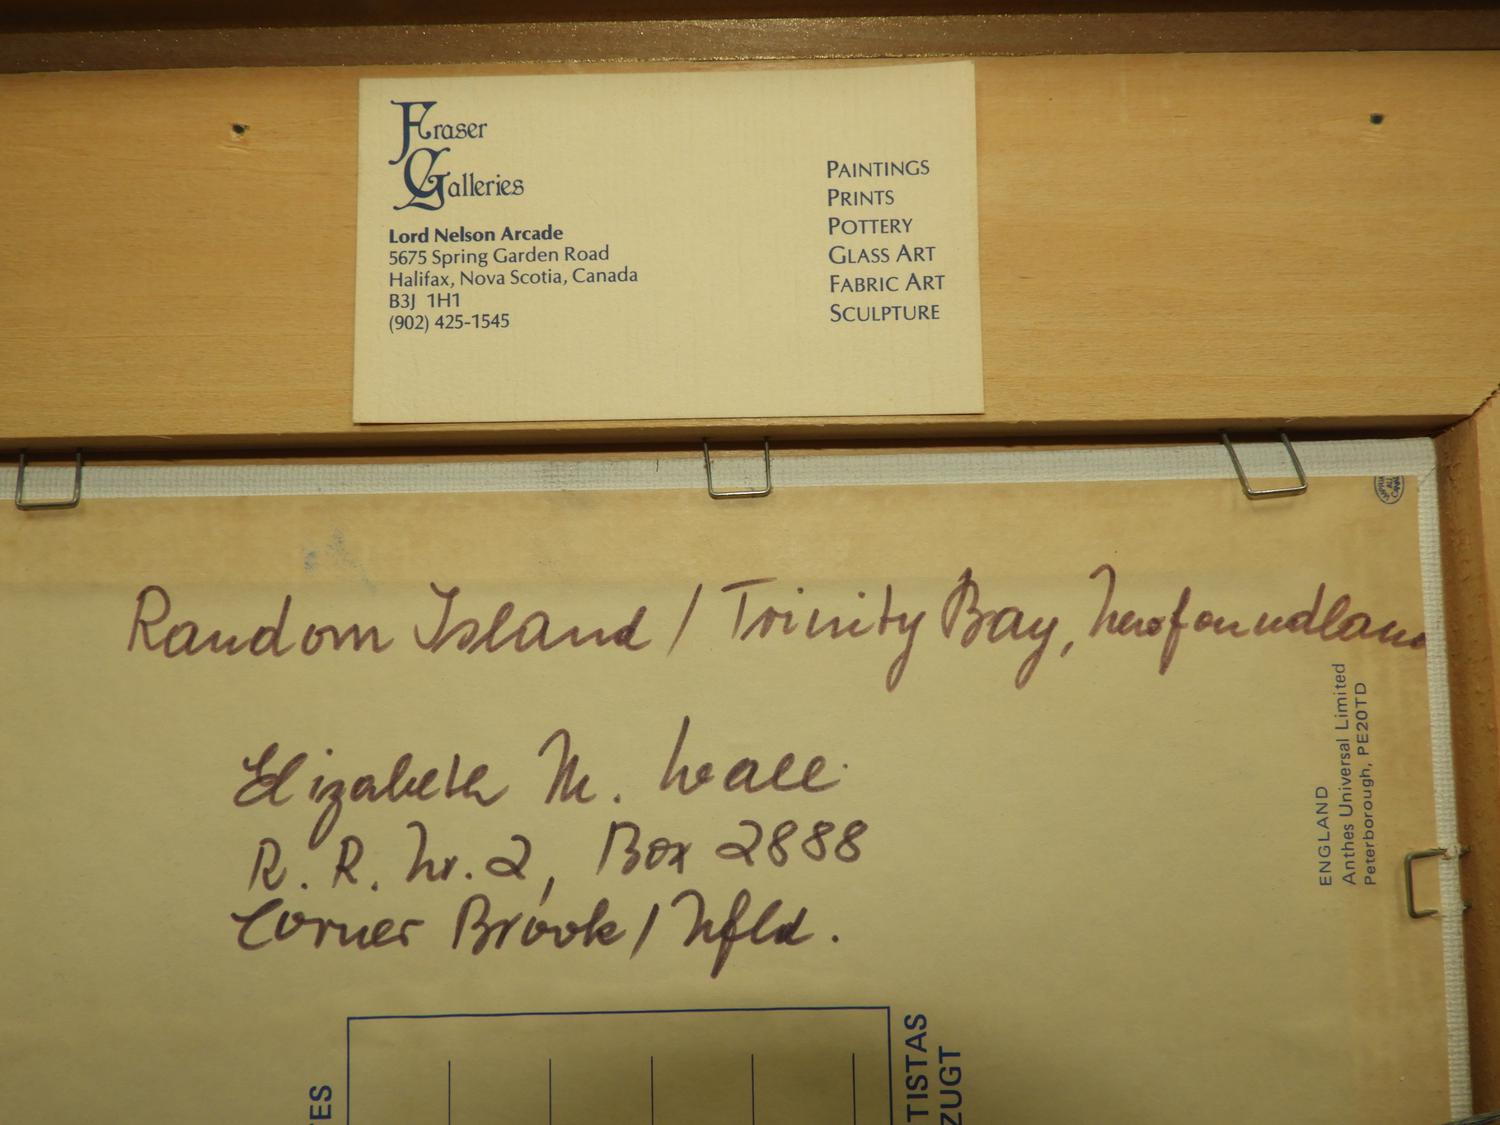 Fraser
Galleries
Lord Nelson Arcade
5675 Spring Garden Road
Halifax, Nova Scotia, Canada
B3J 1H1
(902) 425-1545
PAINTINGS
PRINTS
POTTERY
GLASS ART
FABRIC ART
SCULPTURE
Random Island / Trinity Bay, Newfoundland
Elizabeth M. Wall
R. R. Nr. 2, Box 2888
Corner Brook / Nfld.
ENGLAND
Anthes Universal Limited
Peterborough, PE20TD
TES
TISTAS
ZUGT